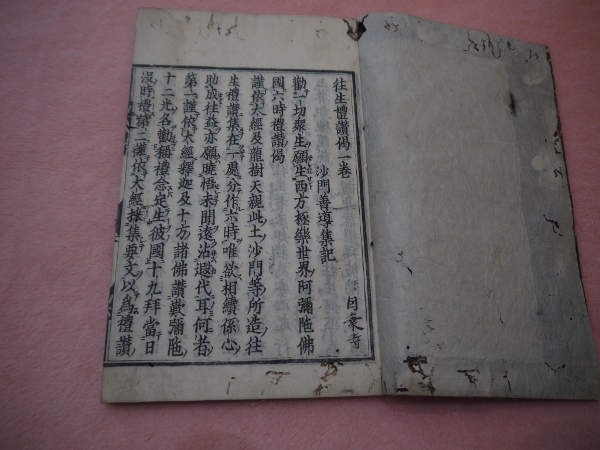 往生禮讃偈一卷
沙門善導集記
勸一切衆生願生西方極樂世界阿彌陁佛
國六時禮讃偈
謹依大經及龍樹天親此土沙門等所造往
生禮讃集在一處分作六時唯欲相續係心
助成往益亦願曉悟未聞遠沾遐代耳何者
第一謹依大經釋迦及十方諸佛讃歎彌陁
十二光名勸稱禮念定生彼國十九拜當日
沒時禮第二謹依大經採集要文以爲禮讃